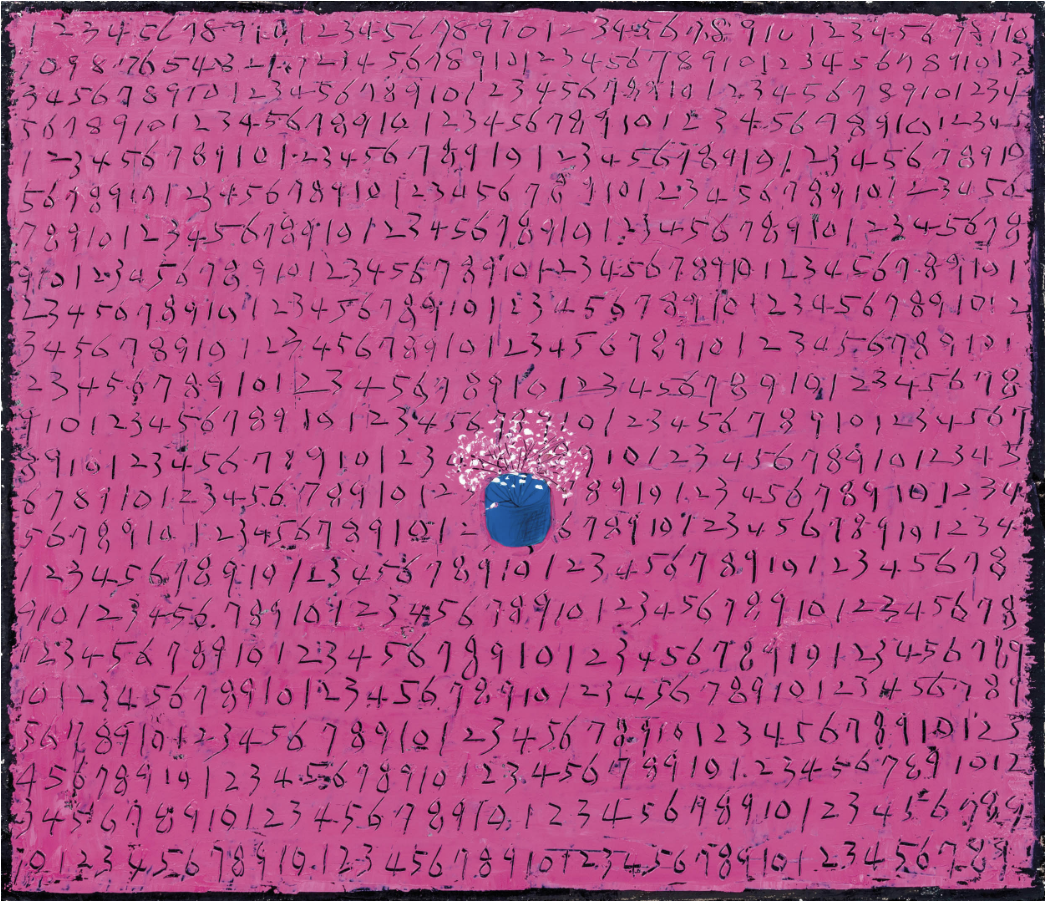 1 2 3 4 5 6 7 8 9 10 1 2 3 4 5 6 7 8 9 10 1 2 3 4 5 6 7 8 9 10 1 2 3 4 5 6 7 8 9 10
10 9 8 7 6 5 4 3 2 1 1 2 3 4 5 6 7 8 9 10 1 2 3 4 5 6 7 8 9 10 1 2 3 4 5 6 7 8 9 10 1 2
3 4 5 6 7 8 9 10 1 2 3 4 5 6 7 8 9 10 1 2 3 4 5 6 7 8 9 10 1 2 3 4 5 6 7 8 9 10 1 2 3 4
5 6 7 8 9 10 1 2 3 4 5 6 7 8 9 10 1 2 3 4 5 6 7 8 9 10 1 2 3 4 5 6 7 8 9 10 1 2 3 4 5
1 2 3 4 5 6 7 8 9 10 1 2 3 4 5 6 7 8 9 10 1 2 3 4 5 6 7 8 9 10 1 2 3 4 5 6 7 8 9 10
5 6 7 8 9 10 1 2 3 4 5 6 7 8 9 10 1 2 3 4 5 6 7 8 9 10 1 2 3 4 5 6 7 8 9 10 1 2 3 4 5 6
7 8 9 10 1 2 3 4 5 6 7 8 9 10 1 2 3 4 5 6 7 8 9 10 1 2 3 4 5 6 7 8 9 10 1 2 3 4 5 6 7 8
9 10 1 2 3 4 5 6 7 8 9 10 1 2 3 4 5 6 7 8 9 10 1 2 3 4 5 6 7 8 9 10 1 2 3 4 5 6 7 8 9 10 1
2 3 4 5 6 7 8 9 10 1 2 3 4 5 6 7 8 9 10 1 2 3 4 5 6 7 8 9 10 1 2 3 4 5 6 7 8 9 10 1 2
3 4 5 6 7 8 9 10 1 2 3 4 5 6 7 8 9 10 1 2 3 4 5 6 7 8 9 10 1 2 3 4 5 6 7 8 9 10 1
2 3 4 5 6 7 8 9 10 1 2 3 4 5 6 7 8 9 10 1 2 3 4 5 6 7 8 9 10 1 2 3 4 5 6 7 8
9 10 1 2 3 4 5 6 7 8 9 10 1 2 3 4 5 6 7 8 9 10 1 2 3 4 5 6 7 8 9 10 1 2 3 4 5 6 7
8 9 10 1 2 3 4 5 6 7 8 9 10 1 2 3 9 10 1 2 3 4 5 6 7 8 9 10 1 2 3 4 5
6 7 8 9 10 1 2 3 4 5 6 7 8 9 10 1 2 8 9 10 1 2 3 4 5 6 7 8 9 10 1 2 3 4
5 6 7 8 9 10 1 2 3 4 5 6 7 8 9 10 1 2 6 7 8 9 10 1 2 3 4 5 6 7 8 9 10 1 2 3 4
1 2 3 4 5 6 7 8 9 10 1 2 3 4 5 6 7 8 9 10 1 2 3 4 5 6 7 8 9 10 1 2 3 4 5 6 7 8
9 10 1 2 3 4 5 6 7 8 9 10 1 2 3 4 5 6 7 8 9 10 1 2 3 4 5 6 7 8 9 10 1 2 3 4 5 6 7 8
1 2 3 4 5 6 7 8 9 10 1 2 3 4 5 6 7 8 9 10 1 2 3 4 5 6 7 8 9 10 1 2 3 4 5 6 7 8 9
10 1 2 3 4 5 6 7 8 9 10 1 2 3 4 5 6 7 8 9 10 1 2 3 4 5 6 7 8 9 10 1 2 3 4 5 6 7 8 9
5 6 7 8 9 10 1 2 3 4 5 6 7 8 9 10 1 2 3 4 5 6 7 8 9 10 1 2 3 4 5 6 7 8 9 10 1 2 3
4 5 6 7 8 9 10 1 2 3 4 5 6 7 8 9 10 1 2 3 4 5 6 7 8 9 10 1 2 3 4 5 6 7 8 9 10 1 2
3 4 5 6 7 8 9 10 1 2 3 4 5 6 7 8 9 10 1 2 3 4 5 6 7 8 9 10 1 2 3 4 5 6 7 8 9
10 1 2 3 4 5 6 7 8 9 10 1 2 3 4 5 6 7 8 9 10 1 2 3 4 5 6 7 8 9 10 1 2 3 4 5 6 7 8 9